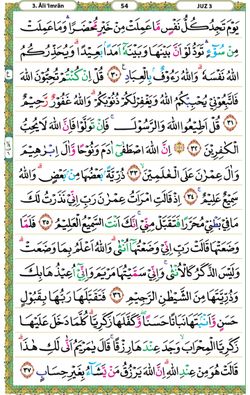 3. Âli 'Imrân 54 JUZ 3
يَوْمَ تَجِدُ كُلُّ نَفْسٍ مَّا عَمِلَتْ مِنْ خَيْرٍ مُّحْضَرًا وَمَا عَمِلَتْ
مِنْ سُوْٓءٍ تَوَدُّ لَوْ اَنَّ بَيْنَهَا وَبَيْنَهٗٓ اَمَدًاۢ بَعِيْدًا وَيُحَذِّرُكُمُ
اللّٰهُ نَفْسَهٗ وَاللّٰهُ رَءُوْفٌۢ بِالْعِبَادِ ٣٠ قُلْ اِنْ كُنْتُمْ تُحِبُّوْنَ اللّٰهَ
فَاتَّبِعُوْنِيْ يُحْبِبْكُمُ اللّٰهُ وَيَغْفِرْ لَكُمْ ذُنُوْبَكُمْ وَاللّٰهُ غَفُوْرٌ رَّحِيْمٌ
٣١ قُلْ اَطِيْعُوا اللّٰهَ وَالرَّسُوْلَ فَاِنْ تَوَلَّوْا فَاِنَّ اللّٰهَ لَا يُحِبُّ
الْكٰفِرِيْنَ ٣٢ اِنَّ اللّٰهَ اصْطَفٰٓى اٰدَمَ وَنُوْحًا وَّاٰلَ اِبْرٰهِيْمَ
وَاٰلَ عِمْرٰنَ عَلَى الْعٰلَمِيْنَ ٣٣ ذُرِّيَّةًۢ بَعْضُهَا مِنْۢ بَعْضٍ وَاللّٰهُ
سَمِيْعٌ عَلِيْمٌ ٣٤ اِذْ قَالَتِ امْرَاَتُ عِمْرٰنَ رَبِّ اِنِّيْ نَذَرْتُ لَكَ
مَا فِيْ بَطْنِيْ مُحَرَّرًا فَتَقَبَّلْ مِنِّيْ اِنَّكَ اَنْتَ السَّمِيْعُ الْعَلِيْمُ ٣٥ فَلَمَّا
وَضَعَتْهَا قَالَتْ رَبِّ اِنِّيْ وَضَعْتُهَآ اُنْثٰى وَاللّٰهُ اَعْلَمُ بِمَا وَضَعَتْ
وَلَيْسَ الذَّكَرُ كَالْاُنْثٰى وَاِنِّيْ سَمَّيْتُهَا مَرْيَمَ وَاِنِّيْٓ اُعِيْذُهَا بِكَ
وَذُرِّيَّتَهَا مِنَ الشَّيْطٰنِ الرَّجِيْمِ ٣٦ فَتَقَبَّلَهَا رَبُّهَا بِقَبُوْلٍ
حَسَنٍ وَّاَنْۢبَتَهَا نَبَاتًا حَسَنًا وَّكَفَّلَهَا زَكَرِيَّا كُلَّمَا دَخَلَ عَلَيْهَا
زَكَرِيَّا الْمِحْرَابَ وَجَدَ عِنْدَهَا رِزْقًا قَالَ يٰمَرْيَمُ اَنّٰى لَكِ هٰذَا
قَالَتْ هُوَ مِنْ عِنْدِ اللّٰهِ اِنَّ اللّٰهَ يَرْزُقُ مَنْ يَّشَآءُ بِغَيْرِ حِسَابٍ ٣٧